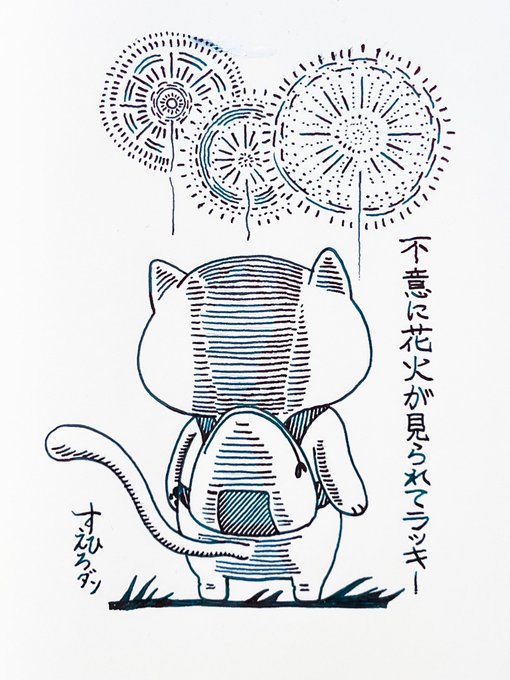 不意に花火が見られてラッキー
すえひろダン